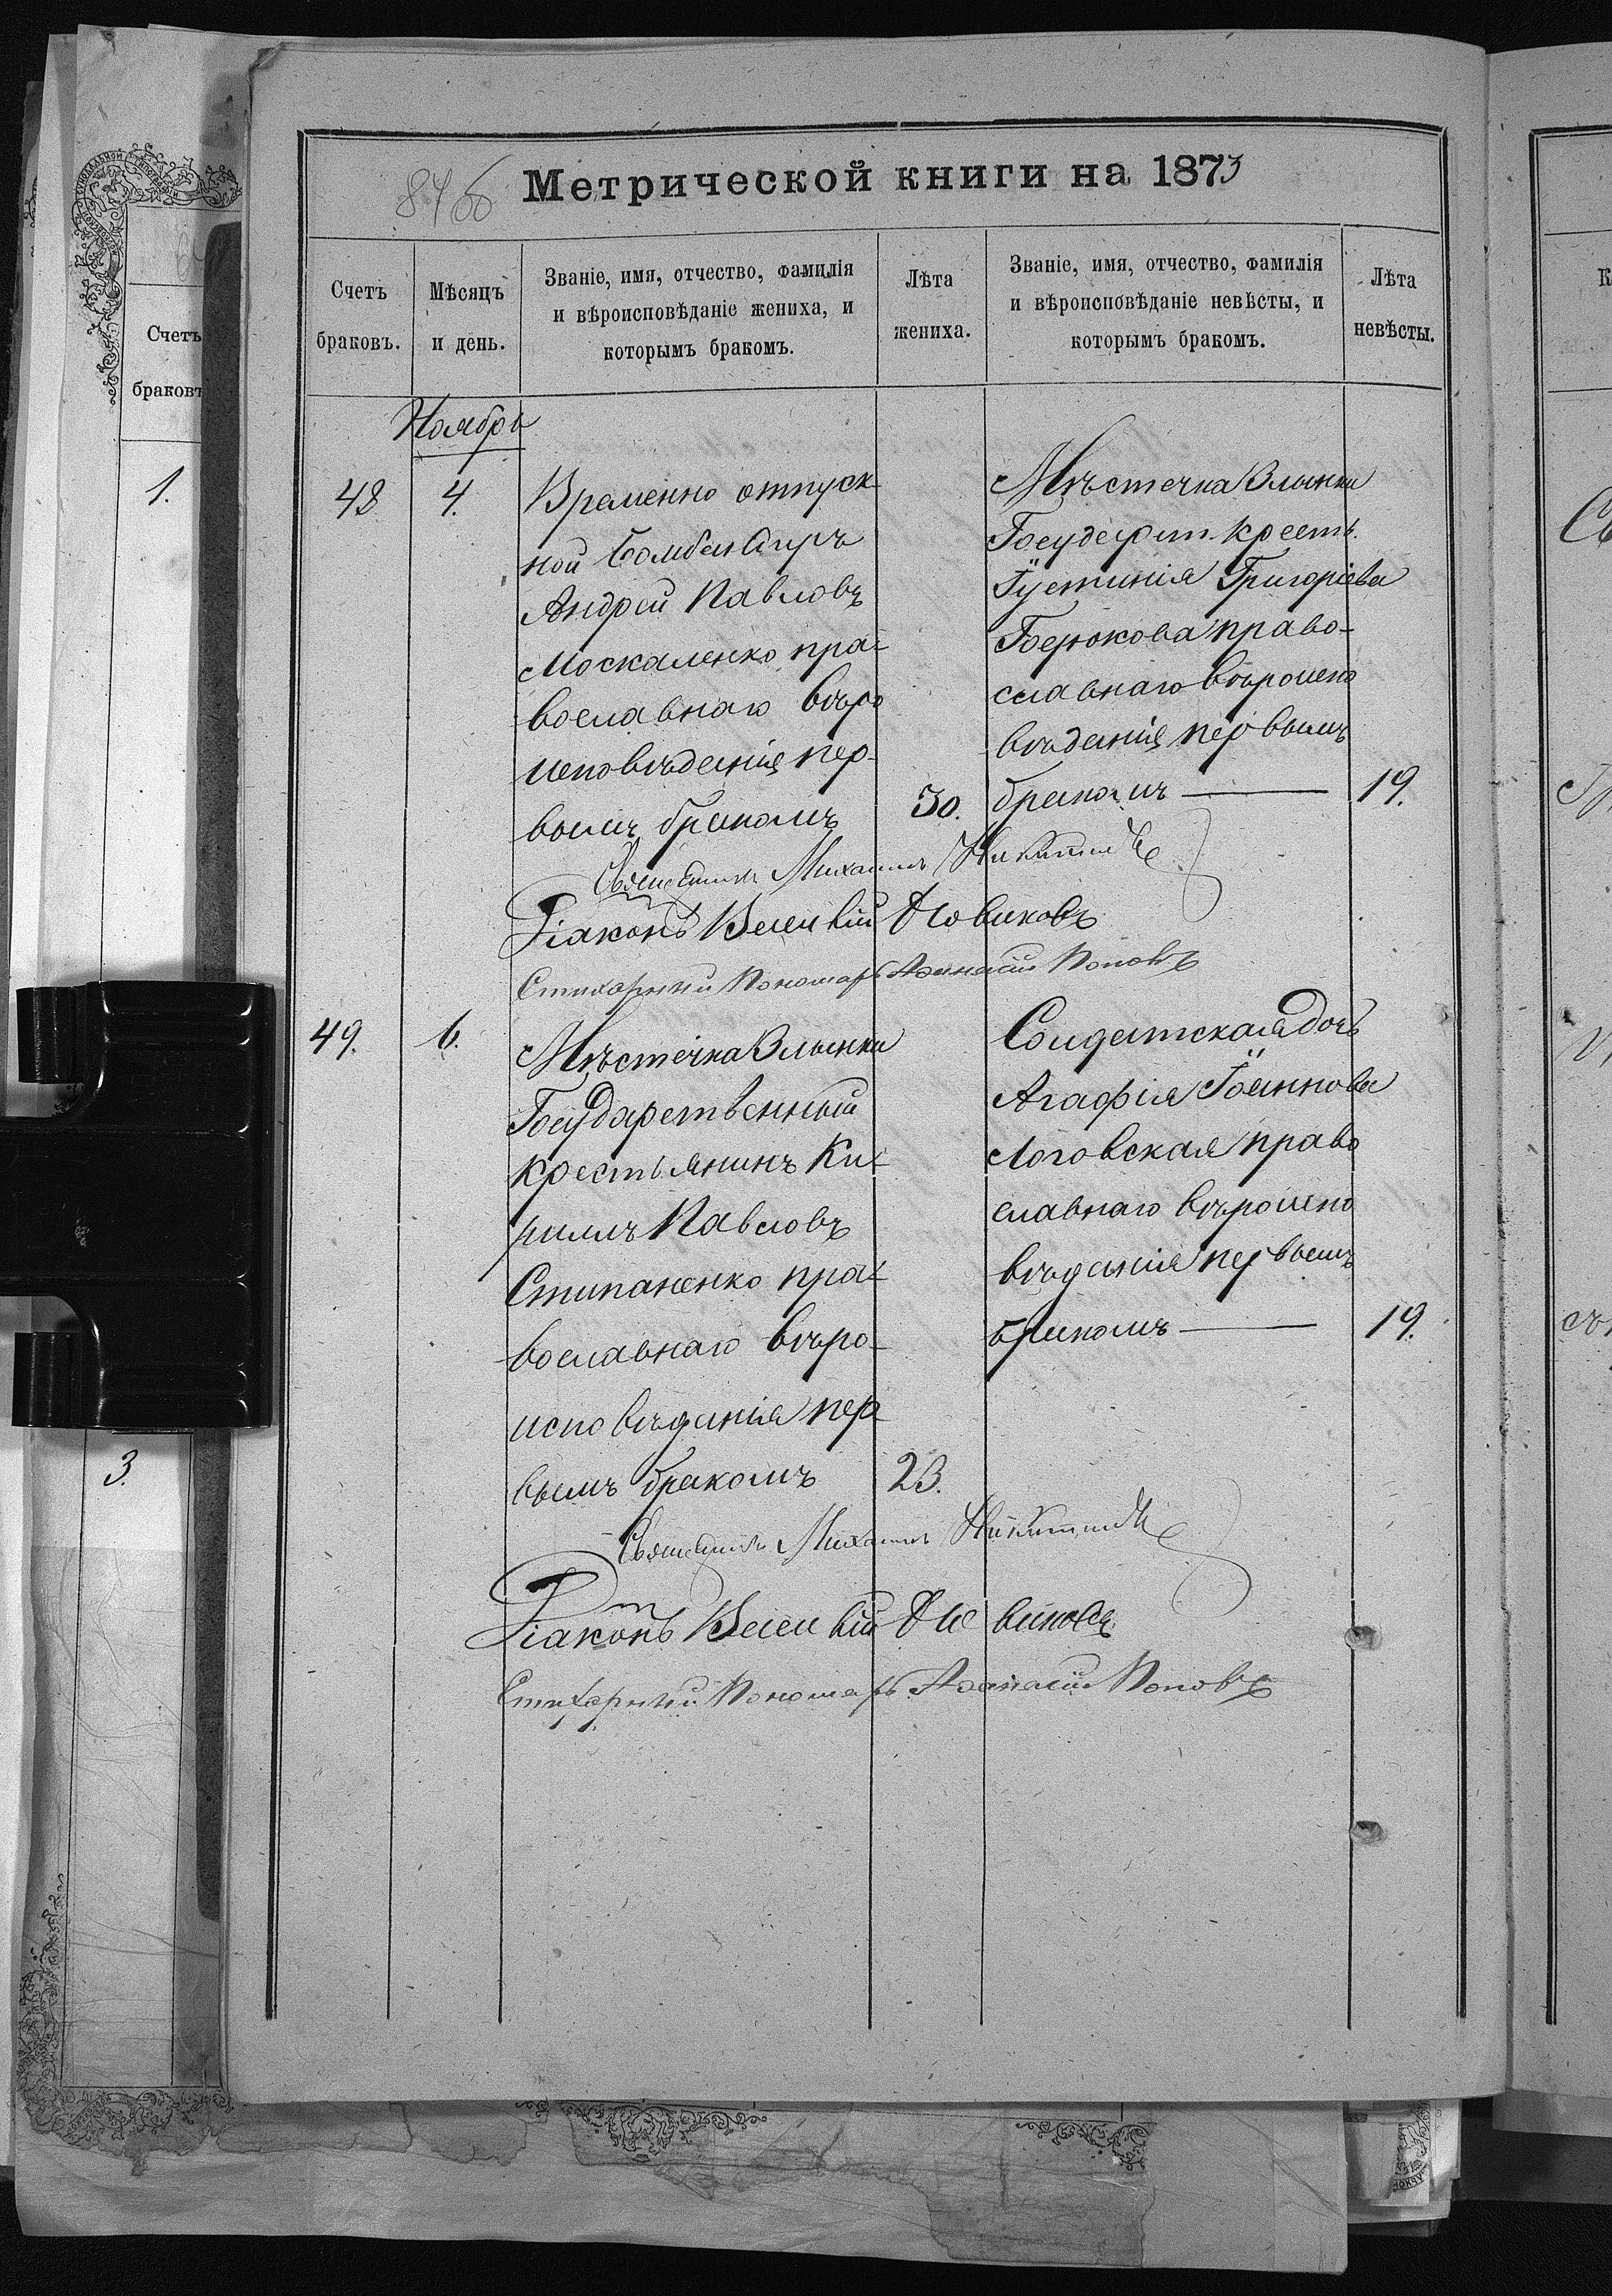 Метрической книги на 1873
Счетъ браковъ.
Мѣсяцъ и день.
Званіе, имя, отчество, фамилія
и вѣроисповѣданіе жениха, и
которымъ бракомъ.
Лѣта
жениха.
Званіе, имя, отчество, фамилія
и вѣроисповѣданіе невѣсты, и
которымъ бракомъ.
Лѣта
невѣсты.
Ноябрь
48
4.
Временно отпуск
ной Бомбандиръ
Андрей Павловъ
Москаленко пра-
вославнаго вѣро
исповѣденія пер-
вымъ бракомъ
30.
Мѣстечка Злынки
Государст. крестъ.
Іустинія Григоріева
Берюкова право-
славнаго вѣроиспо
вѣденія первымъ
бракомъ
19.
Священникъ Михаилъ Никитинъ
Діаконъ Василій Новиковъ
Стихарный Пономарь Аѳанасій Поповъ
49.
6.
Мѣстечка Злынки
Государственный
крестьянинъ Ки-
рилъ Павловъ
Стипаненко пра-
вославнаго вѣро-
исповѣданія пер
вымъ бракомъ
23.
Солдатская дочь
Агафія Іоаннова
Логовская право
славнаго вѣроиспо
вѣданія первымъ
бракомъ
19.
Священникъ Михаилъ Никитинъ
Діаконъ Василій Новиковъ
Стихарный Пономарь Аѳанасій Поповъ
Счетъ
браковъ
1.
3.